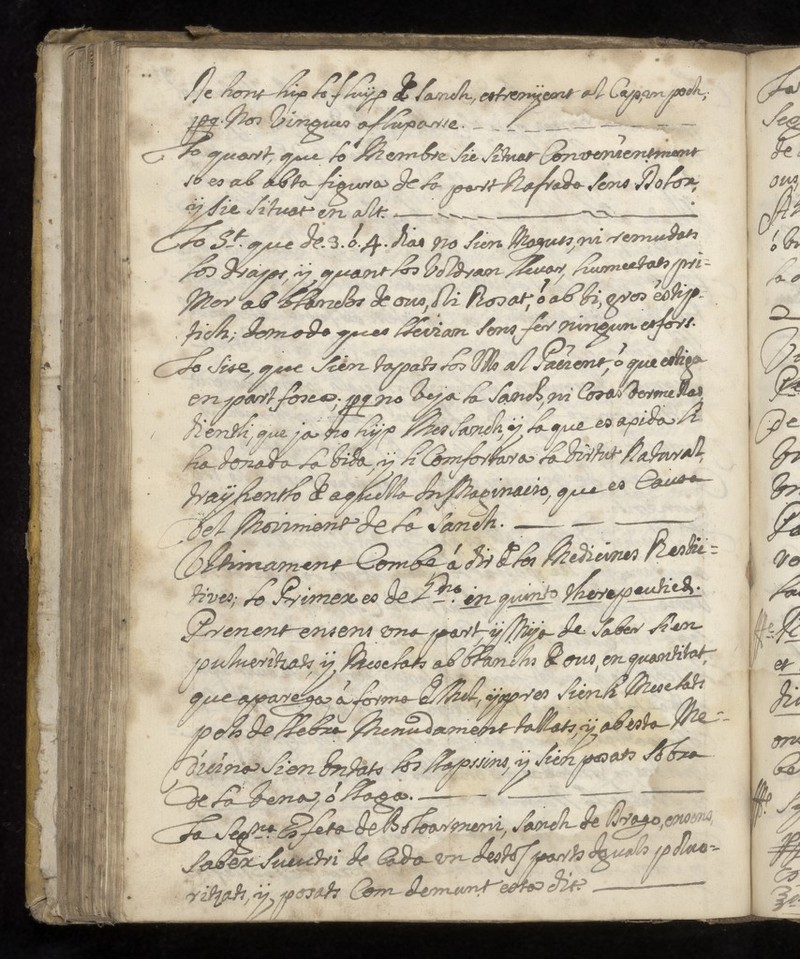 De hont hix lo fluyx de Sanch, estrenyent al Cap, un poch;
pq. Nos vingues afluxarse.
Lo quart, que lo Membre sie situat Convenientment
so es ab abta figura de la part Nafrada sens Dolor,
y sie situat en alt.
Lo 5t. que de 3. ó 4. dias no sien Moguts, ni remudats
los draps, y quant los voldran llevar, humectats pri=
Mer ab blanchs de ous, oli Rosat, ó ab vi, gros estip-
tich; de modo ques llevian sens fer ningun esfors.
Lo sise, que sien tapats los Ulls al Pacient, ó que estiga
en part fosca; pq no veja la Sanch, ni Cosas Vermellas,
dientli, que ja no hix Mes Sanch, y la que es axida li
ha donada la vida, y li Comfortara la virtut Natural,
trayhentlo de aquella Imaginacio, que es Causa
del Moviment de la Sanch.
Ultimament Combe á dir de los Medicines Restric=
tives; la Primera es de in quinto therepeutich.
Prenent ensens una part y Mija de Saber sien
pulverizats, y Mesclats ab blanchs de ous, en quantitat,
que aparega á forma de Mel, y apres sienli Mesclats
pels de llebra Menudament tallats, y ab esta Me=
dicina sien Untats los llapssins, y sien posats Sobra
de la vena, ó llaga.
La Segna. Es feta de Boloarmeni, Sanch de Drago, ensens,
Saber Sucutri de Cada un destos parts yguals polvo=
ritzats, y posats Com demunt esta dit.